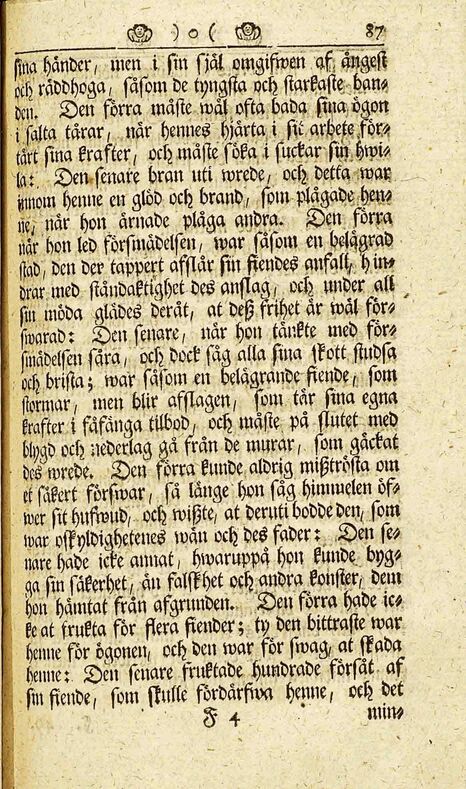 ) o ( 87
sina händer, men i sin själ omgifwen af ångest
och räddhoga, såsom de tyngsta och starkaste ban-
den. Den förra måste wäl ofta bada sina ögon
i salta tårar, när hennes hjärta i sit arbete för-
tärt sina krafter, och måste söka i suckar sin hwi-
la: Den senare bran uti wrede, och detta war
innom henne en glöd och brand, som plågade hen-
ne, när hon ärnade plåga andra. Den förra
når hon led försmädelsen, war såsom en belägrad
stad, den der tappert afslår sin fiendes anfall, hin-
drar med ståndaktighet des anslag, och under all
sin möda glädes deråt, at deß frihet är wäl för-
swarad: Den senare, når hon tänkte med för-
smädelsen såra, och dock såg alla sina skott studsa
och brista; war såsom en belägrande fiende, som
stormar, men blir afslagen, som tär sina egna
krafter i fåfänga tilbod, och måste på slutet med
blygd och nederlag gå från de murar, som gäckat
des wrede. Den förra kunde aldrig mißtrösta om
et säkert förswar, så länge hon såg himmelen öf-
wer sit hufwud, och wißte, at deruti bodde den, som
war oskyldighetenes wän och des fader: Den se-
nare hade icke annat, hwaruppå hon kunde byg-
ga sin säkerhet, än falskhet och andra konster, dem
hon hämtat från afgrunden. Den förra hade ic-
ke at frukta för flera fiender; ty den bittraste war
henne för ögonen, och den war för swag, at skada
henne: Den senare fruktade hundrade försåt af
sin fiende, som skulle fördärfwa henne, och det
F 4 min-